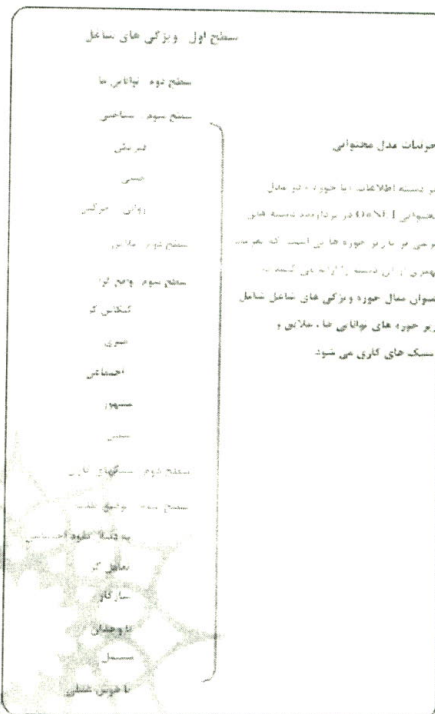 سطح اول ویژگی های شاغل
سطح دوم توانایی ها
سطح سوم شناختی
فیزیکی
حسی
روانی حرکتی
سطح دوم علایق
سطح سوم واقع گرا
کنکاش گر
هنری
اجتماعی
متهور
سنتی
سطح دوم سبکهای کاری
سطح سوم توفیق طلب
به دنبال نفوذ اجتماعی
تعامل گر
سازگار
با وجدان
مستقل
با هوش عملی
جزئیات مدل محتوایی
هر دسته اطلاعات یا حوزه در مدل
محتوایی O*NET در بردارنده دسته های
فرعی و یا زیر حوزه ها یی است که
بهتری از این دسته را ارائه می کنند به
عنوان مثال حوزه ویژگی های شاغل شامل
زیر حوزه های توانایی ها ، علایق و
سبک های کاری می شود